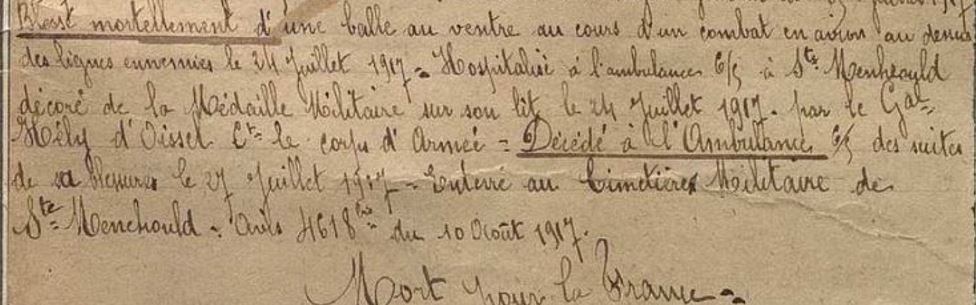 Blessé mortellement d'une balle au ventre au cours d'un combat en avion au dessus
des lignes ennemies le 24 Juillet 1917 = Hospitalisé à l'ambulances 6/5 à Ste Menheould
décoré de la Médaille Militaire sur son lit le 24 Juillet 1917. par le Gal =
Hély d'Oissel Ct = le corps d'Armée = Décédé à l'Ambulance 6/5 des suites
de sa blessures le 27 Juillet 1917 = Enterré au Cimetière Militaire de
Ste = Menehould = avis 4618 du 10 Août 1917.
Mort pour la France =